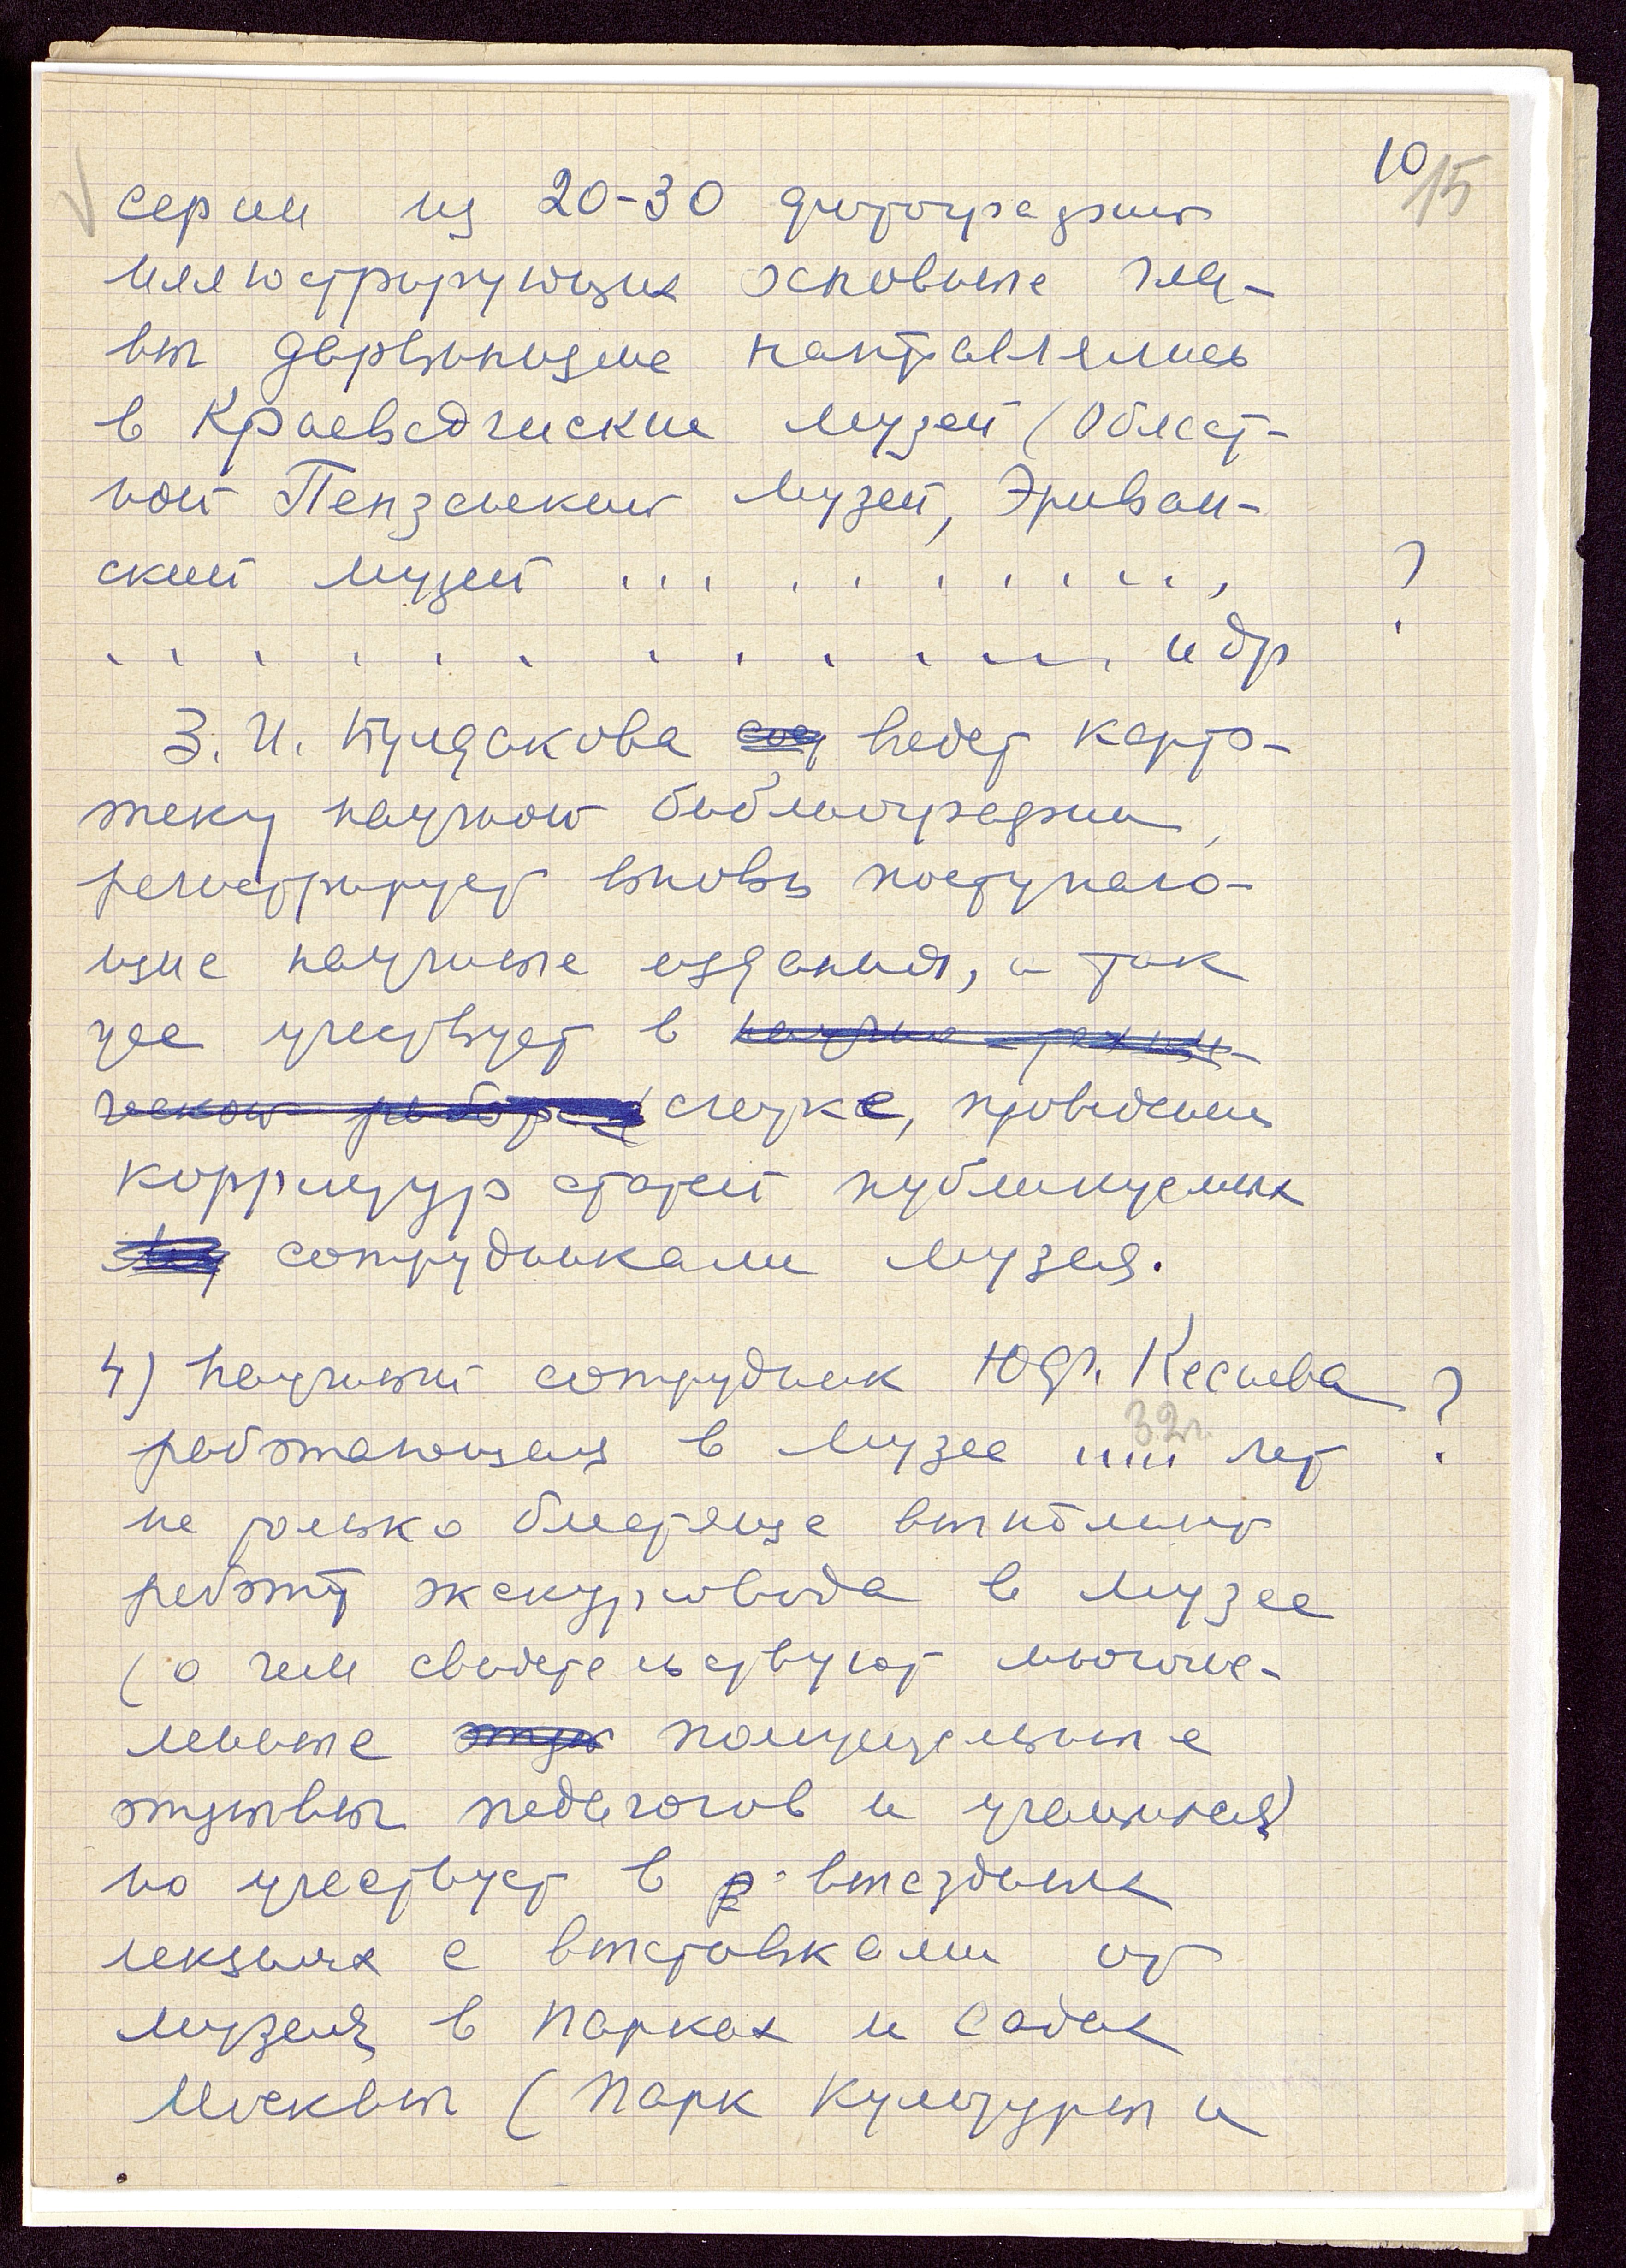 10
15
серии из 20-30 фотографий
иллюстрирующих основные гла-
вы дарвинизма направлялись
в Краеведческие музеи (Област-
ной Пензенский музей, Эриван-
ский музей . . . . . . . . . . . , ?
. . . . . . . . . . . . . и др
З. И. ведет карто-
теку научной библиографии,
регистрирует вновь поступаю-
щие научные издания, а так
же участвует в научно-техни-
ческой работе сверке, проведении
корректур статей публикуемых
сотрудниками музея.
4) Научный сотрудник Кесаева ?
32 г.
работающая в Музее ..... лет
не только блестяще выполняет
работу экскурсовода в музее
(о чем свидетельствуют многочис-
ленные положительные
отзывы педагогов и учащихся)
но участвует в выездных
лекциях с выставками от
музея в парках и садах
Москвы (Парк Культуры и